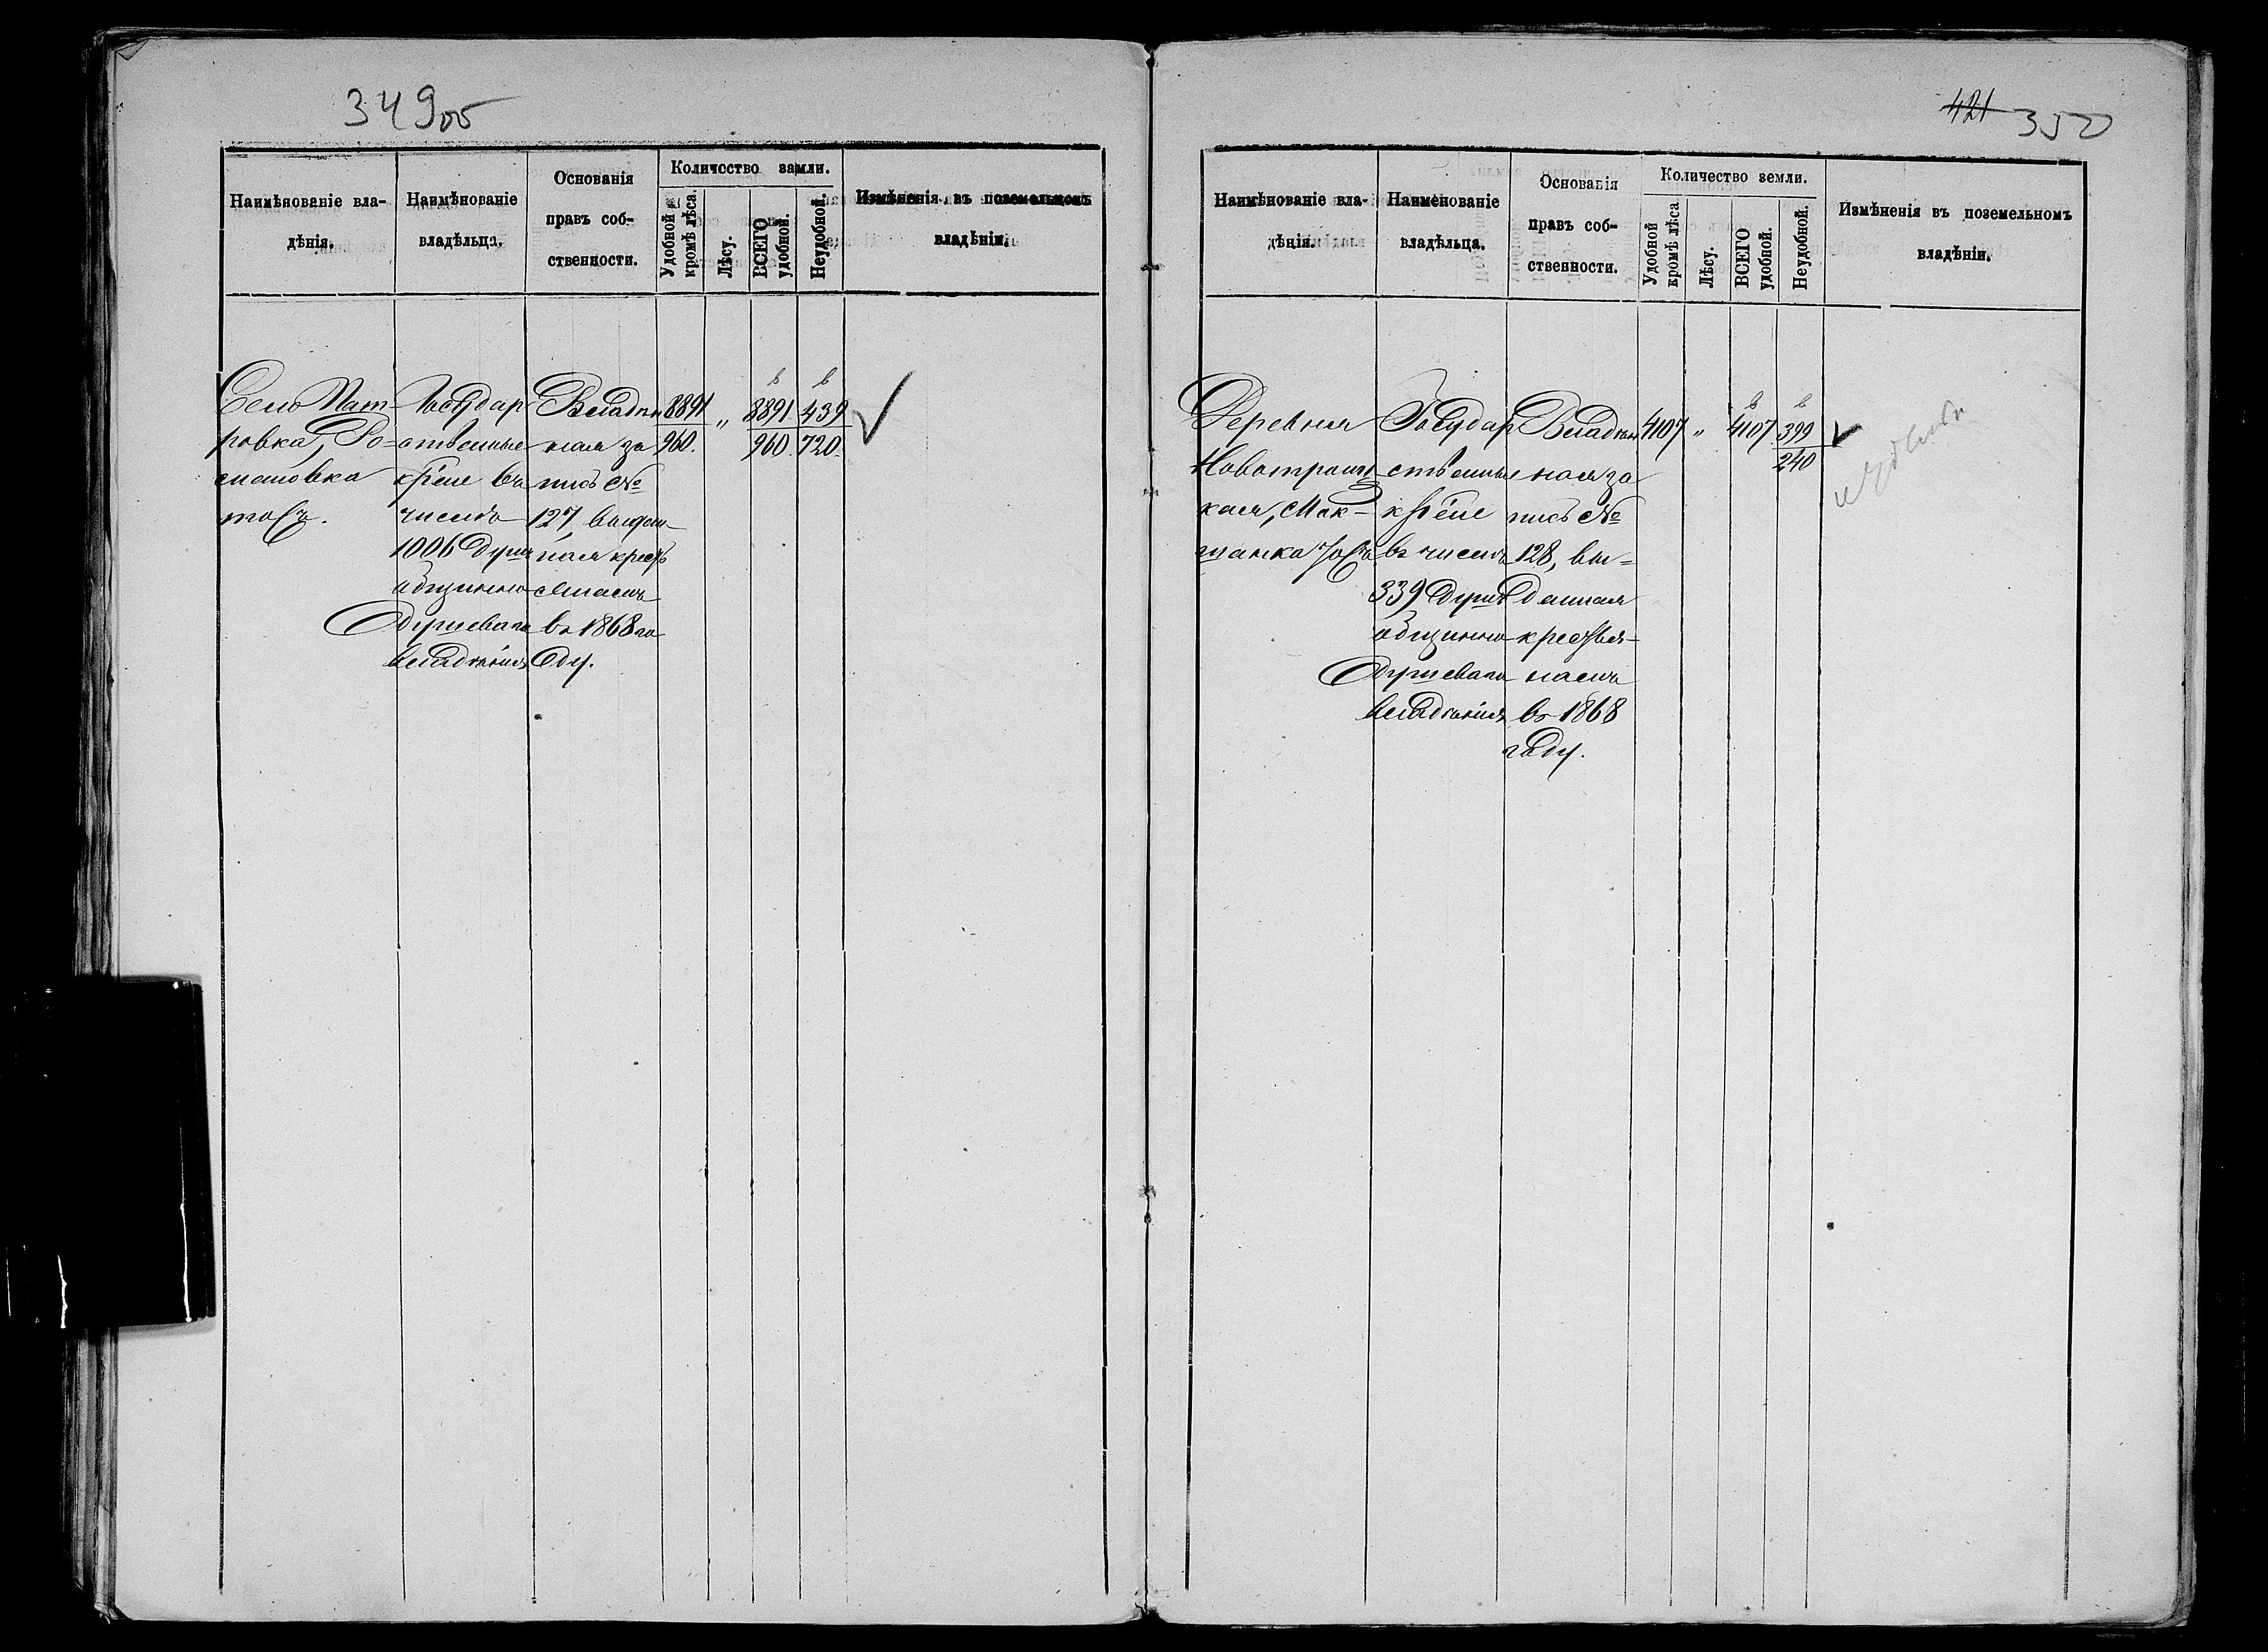 349об
Наимѣнованіе вла-
дѣнія.
Наимѣнованіе
владѣльца.
Основанія
правъ соб-
ственности.
Количество замли.
Удобной
кромѣ лѣса.
Лѣсу.
ВСЕГО
удобной.
Неудобной.
Измѣненія въ поземельномъ
владѣніи.
Село Пат-
ровка,
тожъ.
Государ
ственные
кр-не въ
числѣ
1006 душ
общинно
душеваго
владѣнія
Владѣн
ная за
пись №
127, выдан
ная крест
въ 1868 го
ду.
8891
960.
„
8891
960.
439
720.
421 350
Наимѣнованіе вла-
дѣнія.
Наименованіе
владѣльца.
Основанія
правъ соб-
ственности.
Количество земли.
Удобной
кромѣ лѣса.
Лѣсу.
ВСЕГО
удобной.
Неудобной.
Измѣненія въ поземельномъ
владѣніи.
Деревня
Новотроиц
кая,
тожъ
Государ
ственные
кр-не
въ числѣ
339 душъ
общинно
душеваго
владѣнія
Владѣн
ная за
пись №
128, вы-
данная
крестья-
намъ
въ 1868
году.
4107
„
4107
399
240